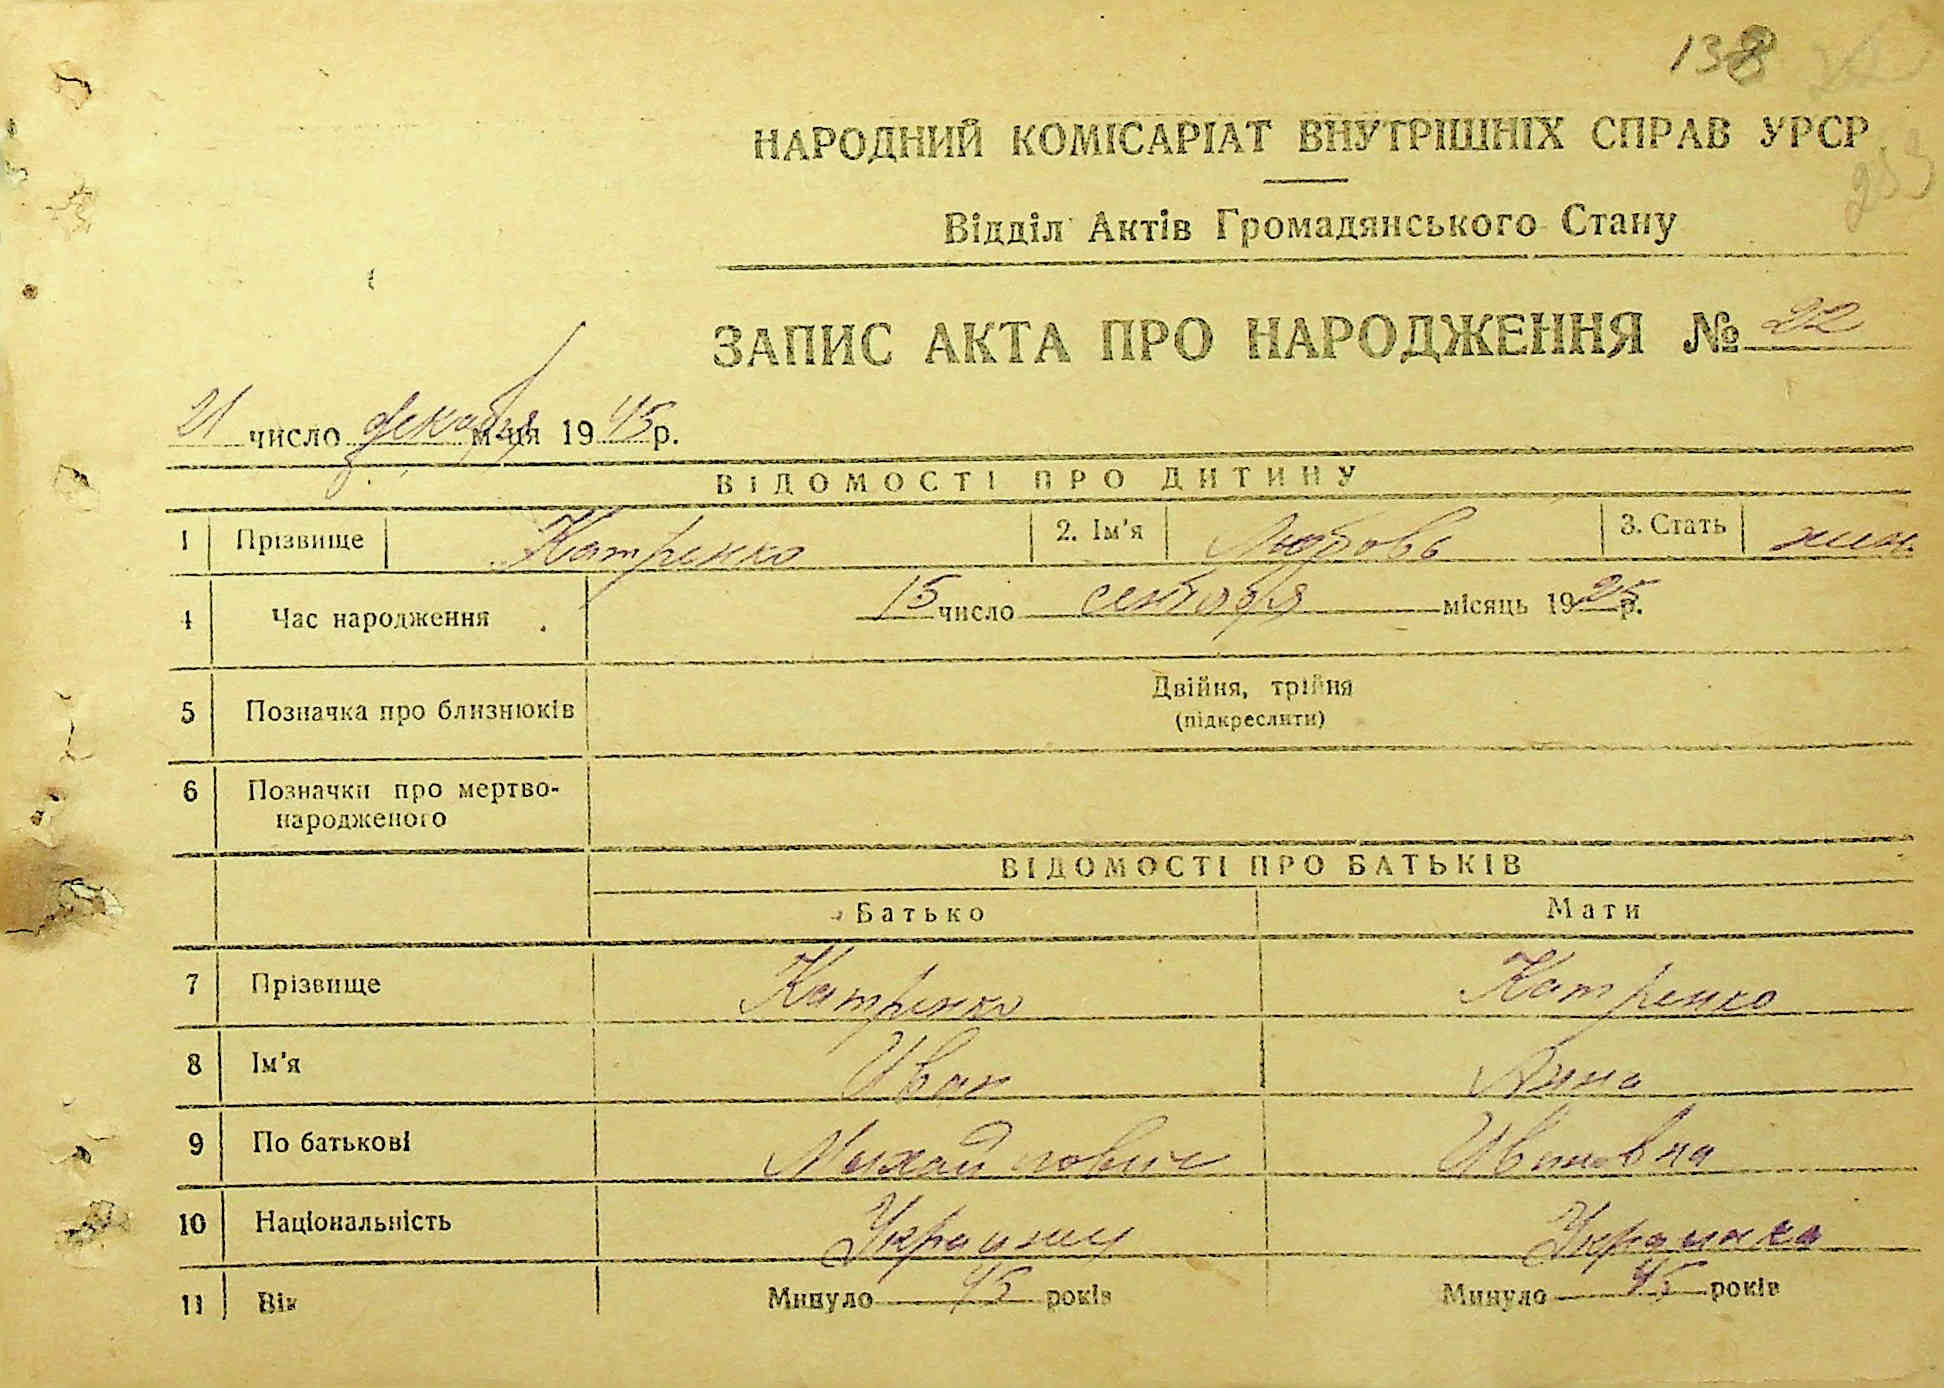 138
НАРОДНИЙ КОМІСАРІАТ ВНУТРІШНІХ СПРАВ УРСР
Відділ Актів Громадянського Стану
ЗАПИС АКТА ПРО НАРОДЖЕННЯ № 22
21 число декабря м-ця 1945 р.
ВІДОМОСТІ ПРО ДИТИНУ
1 Прізвище Катренко 2. Ім'я Любовь 3. Стать жин.
4 Час народження 15 число сентября місяць 1925 р.
5 Позначка про близнюків Двійня, трійня
(підкреслити)
6 Позначки про мертво-
народженого
ВІДОМОСТІ ПРО БАТЬКІВ
Батько Мати
7 Прізвище Катренко Катренко
8 Ім'я Иван Анна
9 По батькові Михайлович Ивановна
10 Національність Украинец Украинка
11 Вік Минуло 45 років Минуло 45 років